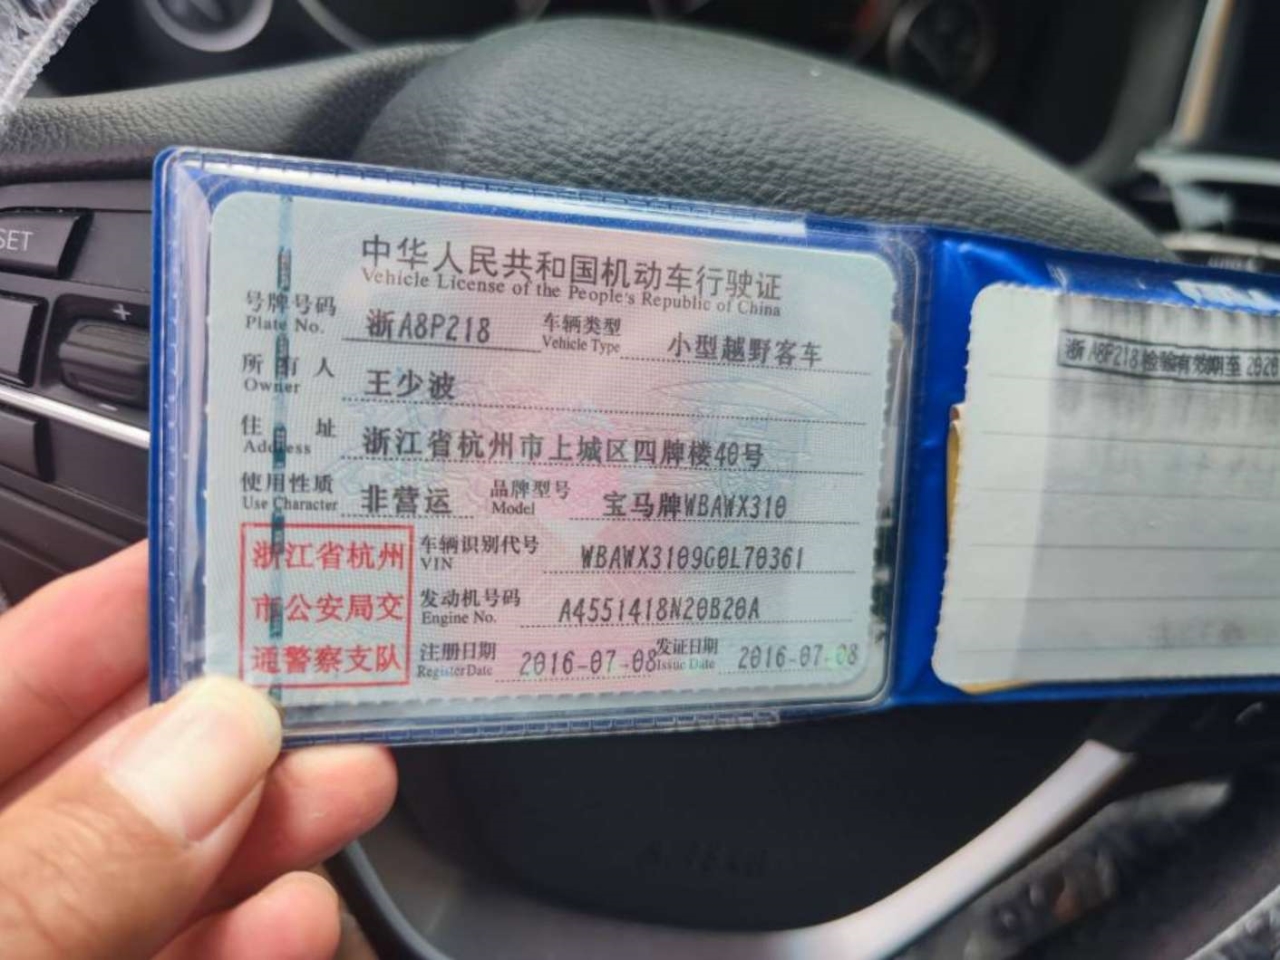 SET
+
-
中华人民共和国机动车行驶证
Vehicle License of the People's Republic of China
号牌号码 浙A8P218 车辆类型 小型越野客车
Plate No. Vehicle Type
所有人 王少波
Owner
住址 浙江省杭州市上城区四牌楼40号
Address
使用性质 非营运 品牌型号 宝马牌WBAWX310
Use Character Model
浙江省杭州
市公安局交
通警察支队
车辆识别代号 WBAWX3109G0L70361
VIN
发动机号码 A4551418N20B20A
Engine No.
注册日期 2016-07-08 发证日期 2016-07-08
Register Date Issue Date
浙A8P218检验有效期至2020